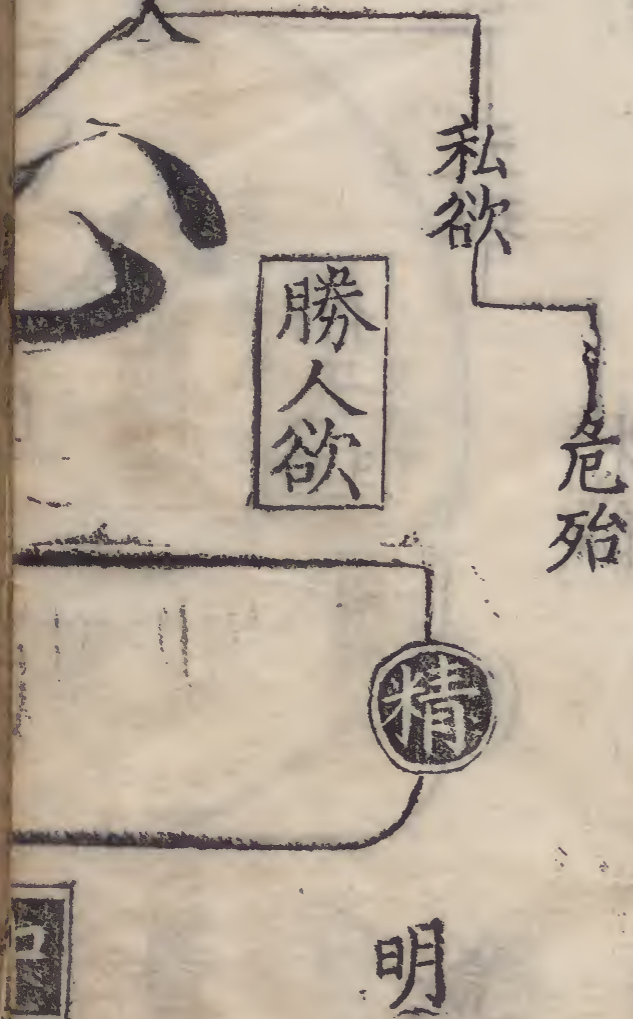 人
私欲
危殆
勝人欲
心
精
明